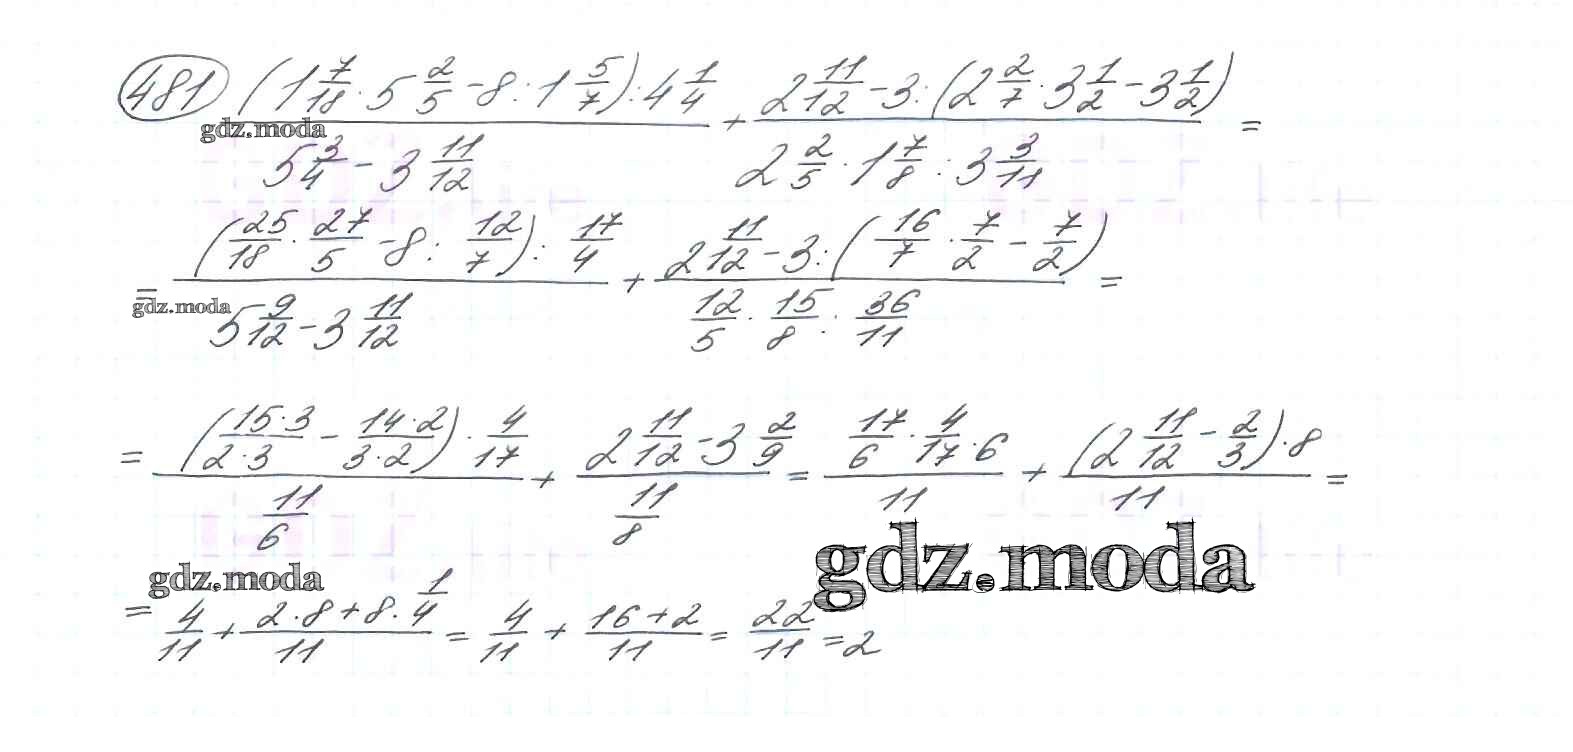 481 (1 7/18 · 5 2/5 - 8 : 1 5/7) : 4 1/4 / 5 3/4 - 3 11/12 + 2 11/12 - 3 : (2 2/7 · 3 1/2 - 3 1/2) / 2 2/5 · 1 7/8 : 3 3/11 =
gdz.moda
= (25/18 · 27/5 - 8 : 12/7) : 17/4 / 5 9/12 - 3 11/12 + 2 11/12 - 3 : (16/7 · 7/2 - 7/2) / 12/5 · 15/8 : 36/11 =
gdz.moda
= (15·3/2·3 - 14·2/3·2) · 4/17 / 11/6 + 2 11/12 - 3 2/9 / 11/8 = 17/6 · 4/17 · 6 / 11 + (2 11/12 - 2/3) · 8 / 11 =
gdz.moda
gdz.moda
= 4/11 + 2·8 + 8· 1/4 / 11 = 4/11 + 16+2/11 = 22/11 = 2